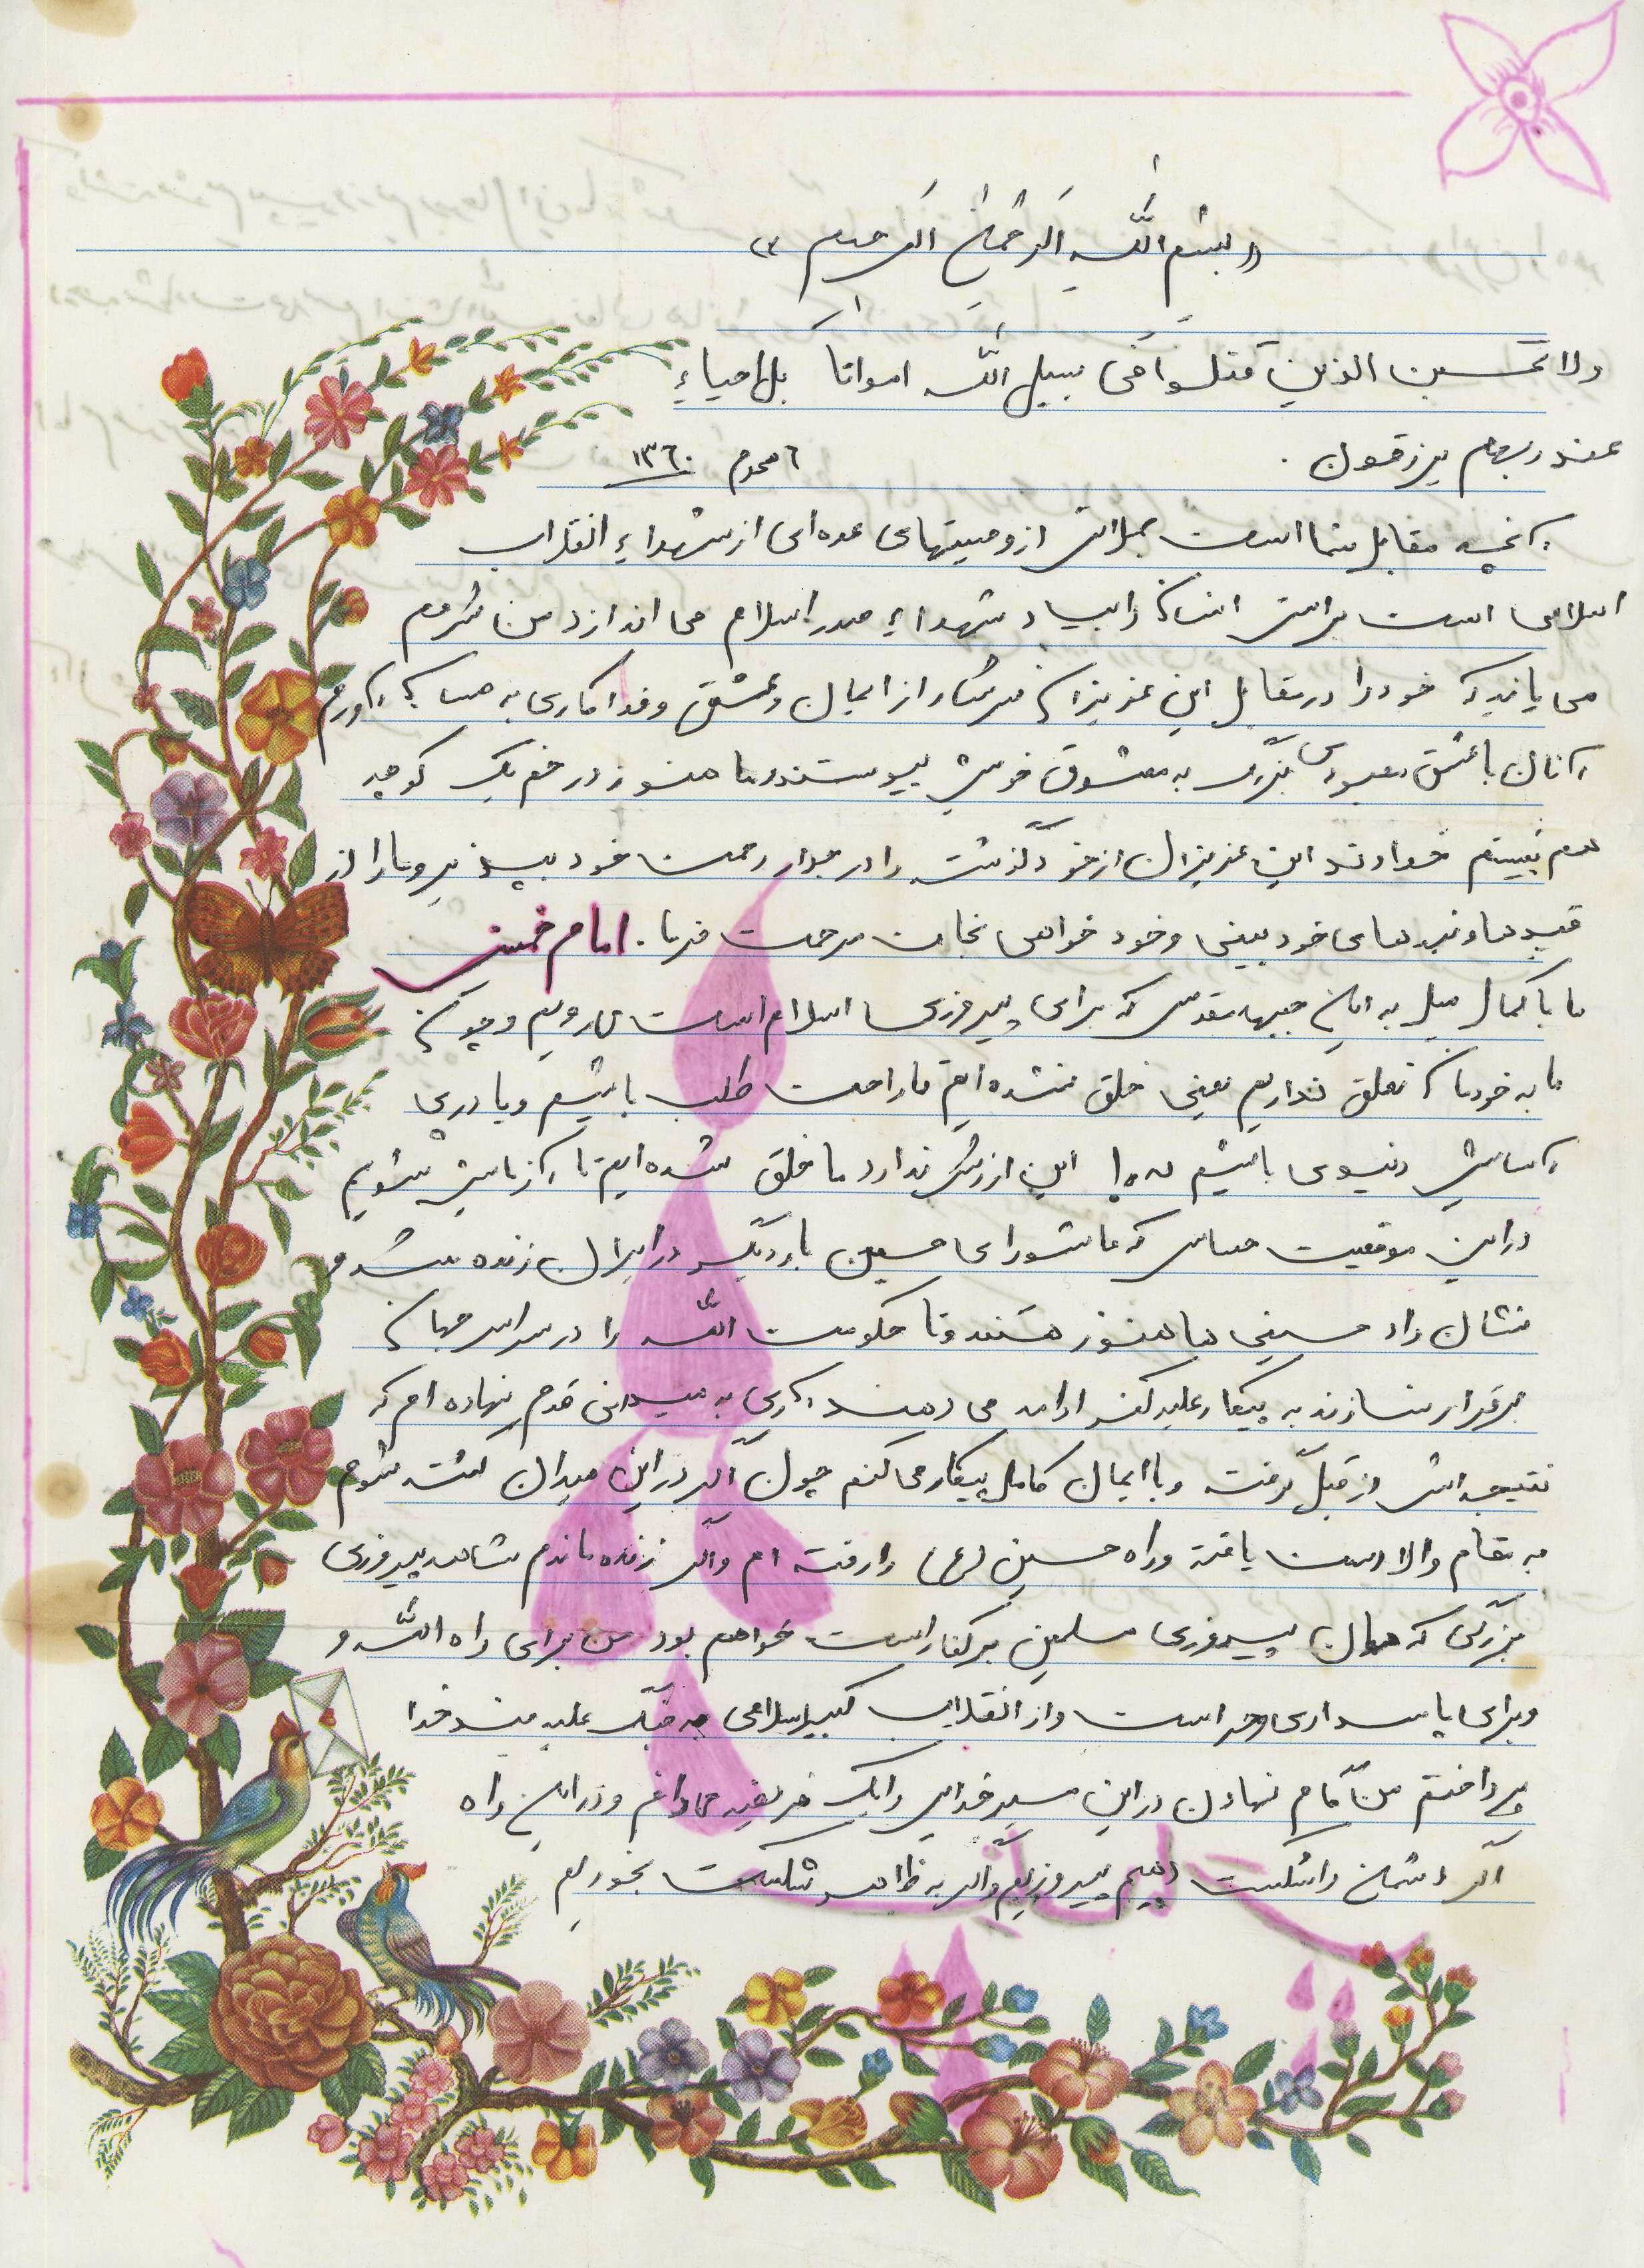 «بِسْمِ اللّهِ الرَّحْمٰنِ الرَّحیم»
ولا تحسبن الذین قتلوا فی سبیل اللّه امواتا بل احیاءِ
عند ربهم یرزقون . ٦ محرم ١٣٦٠
آنچه مقابل شما است بخش از وصیتهای عده‌ای از شهداءِ انقلاب
اسلامی است برایتر انسان را بیاد شهداءِ صدر اسلام می اندازد من شرم
می یابد که خود را در مقابل این عزیزان سرشار از ایمان و عشق و فداکاری به حساب آورم
آنان با عشق معبودی بزرگ به معشوق خویش پیوستند و ما هنوز در خم یک کوچه
هم نیستیم خداوند این عزیزان از خود گذشته را در جوار رحمت خود بپذیر و ما را از
قیدها و بندهای خود بینی و خود خواهی نجات مرحمت فرما . امام خمینی
ما با کمال میل به این جبهه مقدس که برای پیروزی اسلام است می رویم و چون
ما به خودمان تعلق نداریم یعنی خلق نشده ایم تا راحت طلب باشیم و یا در پی
آسایش دنیوی باشیم نه ! این ارزش ندارد ما خلق شده ایم تا آزمایش شویم
در این موقعیت حساس که عاشورای حسین بار دیگر در ایران زنده شد و
نشان داد حسینی ها هنوز هستند و تا حکومت اللّه را در سراسر جهان
برقرار نسازند به پیکار علیه کفر ادامه می دهند آری به میدانی قدم نهاده ام که
نتیجه اش از قبل گرفته و با ایمان کامل پیکار می کنم چون اگر در این میدان کشته شوم
به مقام والا دست یافته و راه حسین (ع) را رفته ام و اگر زنده ماندم شاهد پیروزی
بزرگی که همان پیروزی مسلمین بر کفار است خواهم بود من برای راه اللّه و
و برای پاسداری و حراست و از انقلاب کبیر اسلامی به جنگ علیه ضد خدا
پرداختم من گام نهادن در این مسیر خدایی را یک فریضه میدانم و در این راه
اگر دشمن را شکست دهیم پیروزیم و اگر به ظاهر شکست بخوریم